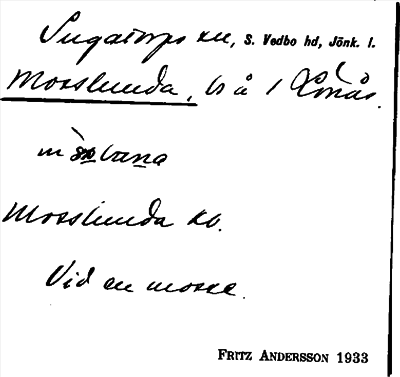 Ingatorps sn, S. Vedbo hd, Jönk. l.
Mosslunda, ls å 1 Lönås.
Mosslunda ko.
Vid en mosse.
FRITZ ANDERSSON 1933